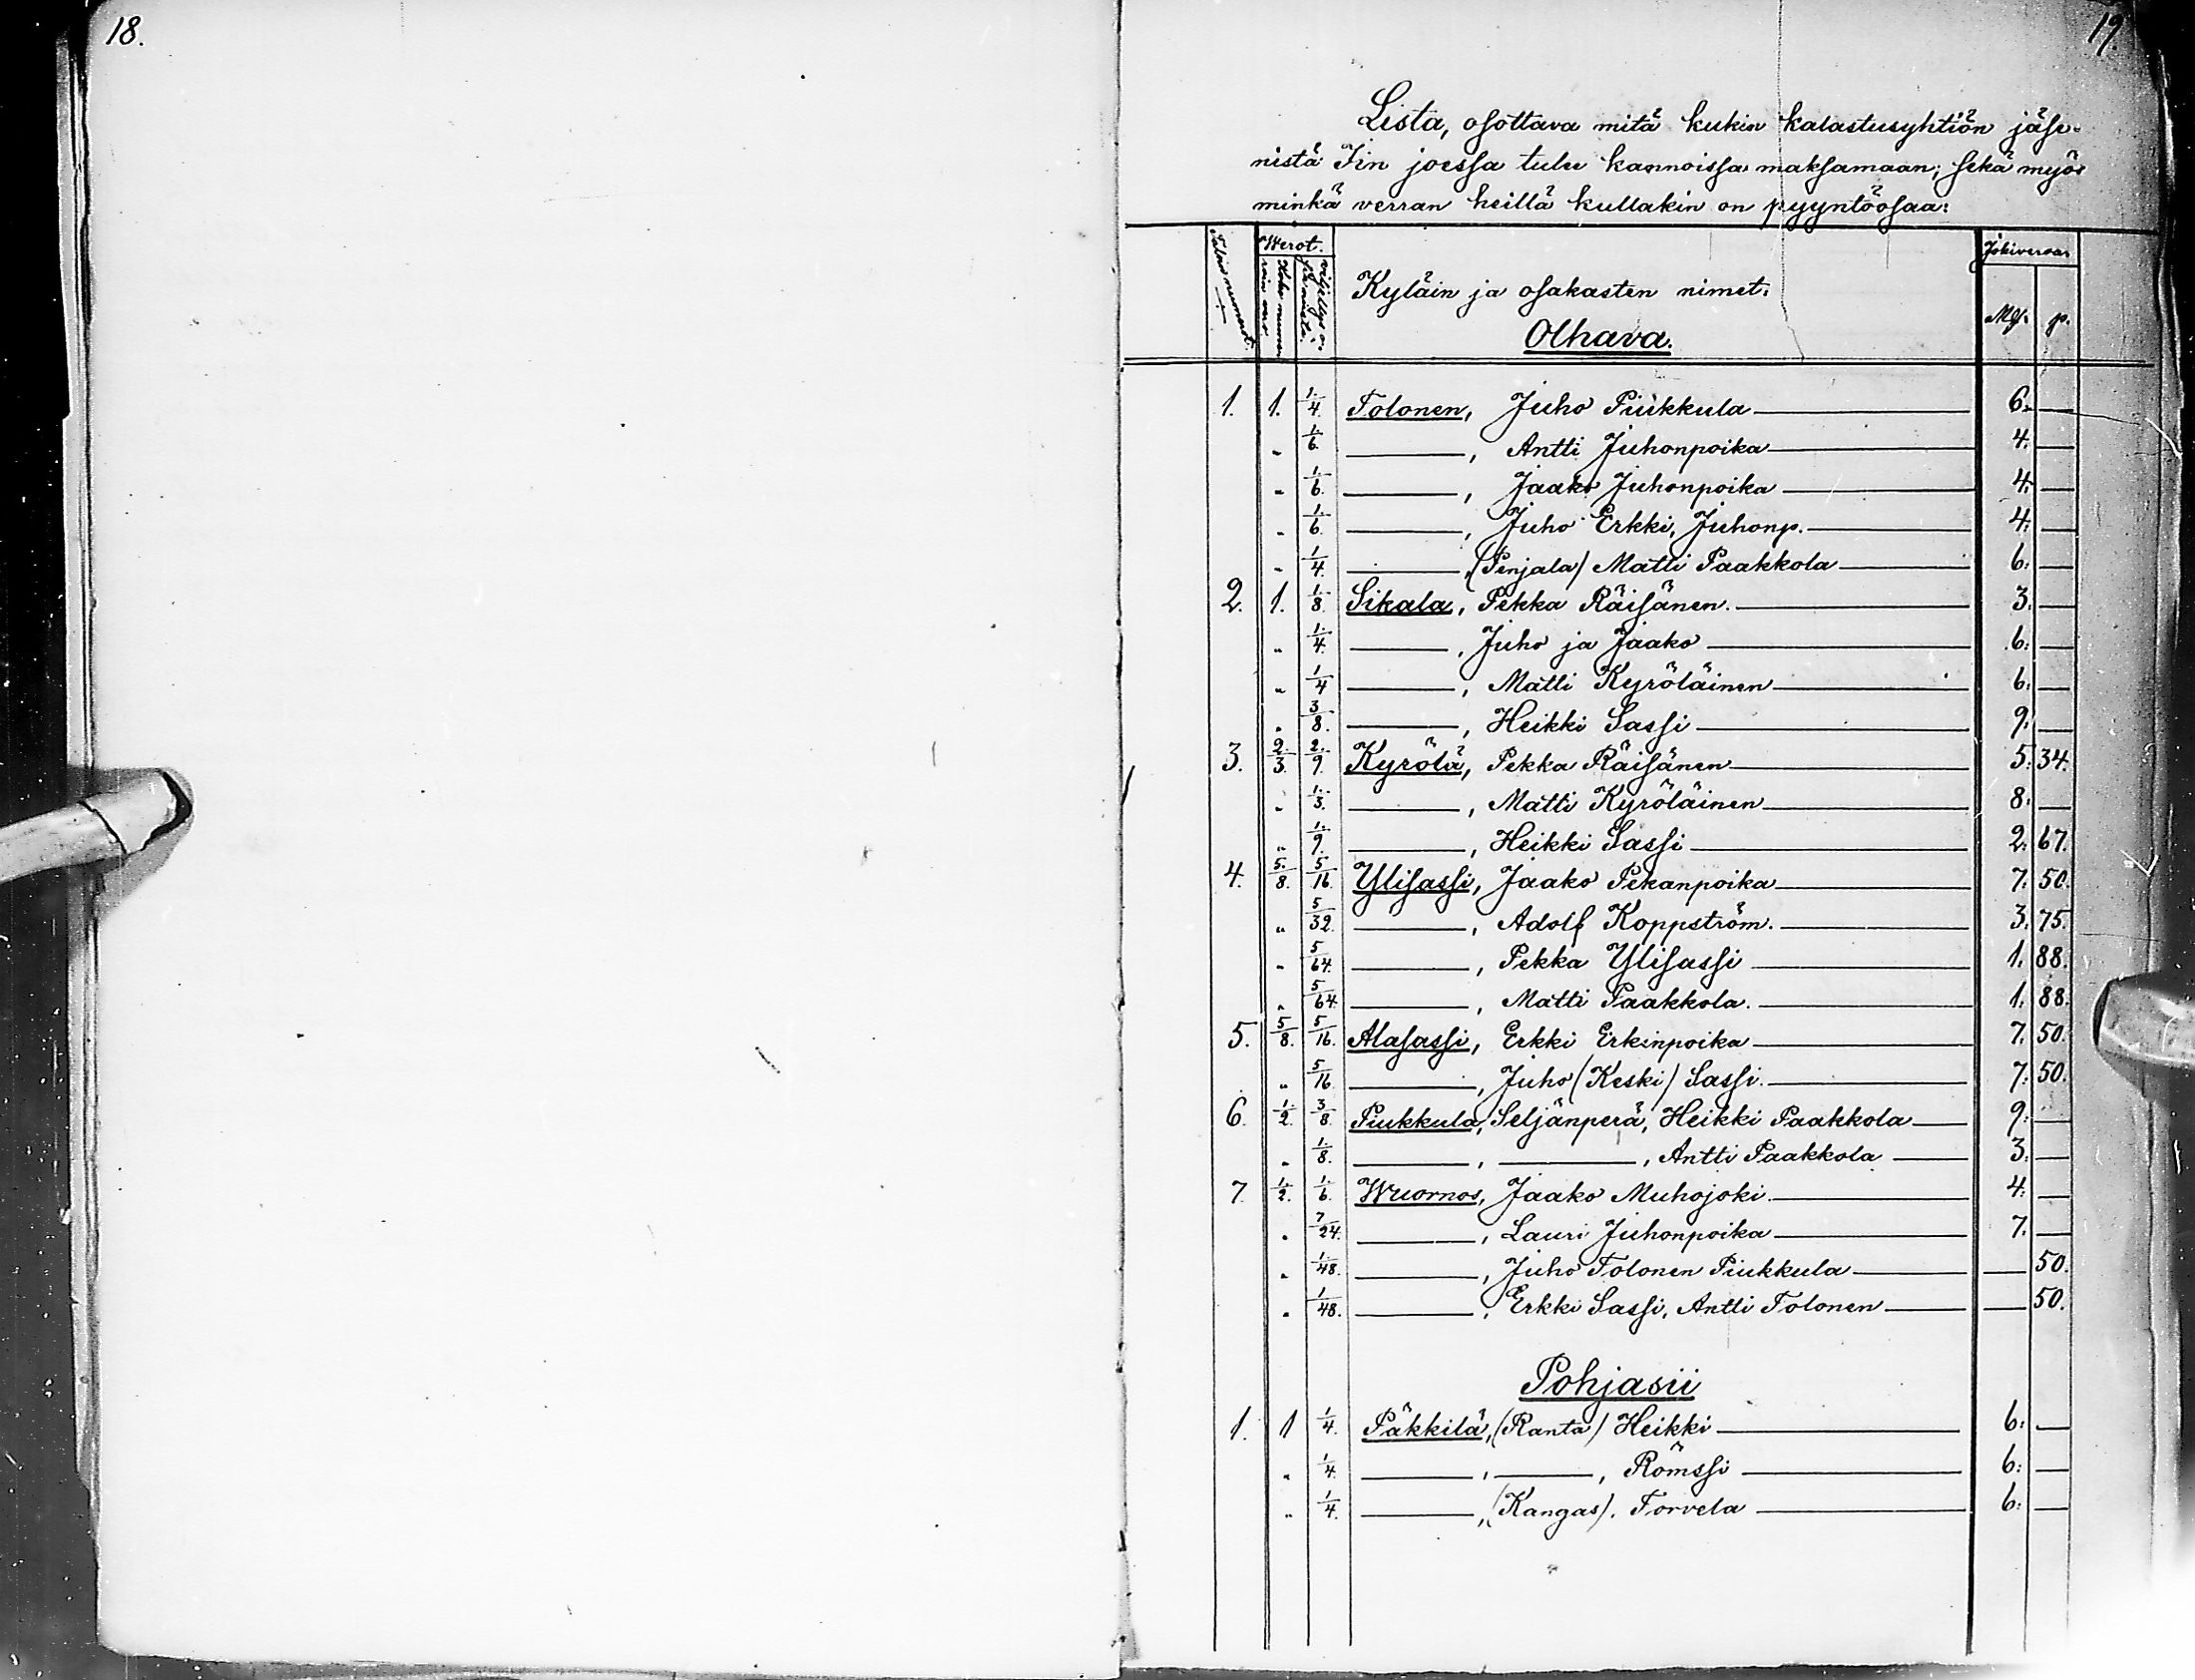 18.
19.
Lista, osottava mitä kukin kalastusyhtiön jäse-
nistä Iin joessa tulee kannoissa maksamaan; sekä myös
minkä verran heillä kullakin on pyyntöosaa:
Taloin numerot. Werot. Jokiveroa
Koko numeroin vero Kyläin ja osakasten nimet. Mf. p.
Olhava.
1. 1. 1/4. Tolonen, Juho Piukkula 6. —
„ 1/6. —, Antti Juhonpoika 4. —
„ 1/6. —, Jaako Juhonpoika 4. —
„ 1/6. —, Juho Erkki, Juhonp. 4. —
„ 1/4. —, (Penjala) Matti Paakkola 6. —
2. 1. 1/8. Sikala, Pekka Räisänen. 3. —
„ 1/4. —, Juho ja Jaako 6. —
„ 1/4 —, Matti Kyröläinen 6. —
„ 3/8. —, Heikki Sassi 9. —
3. 2/3. 2/9. Kyrölä, Pekka Räisänen 5. 34.
„ 1/3. —, Matti Kyröläinen 8. —
„ 1/9. —, Heikki Sassi 2. 67.
4. 5/8. 5/16. Ylisassi, Jaako Pekanpoika 7. 50.
„ 5/32. —, Adolf Koppström. 3. 75.
„ 5/64. —, Pekka Ylisassi 1. 88.
„ 5/64. —, Matti Paakkola. 1. 88.
5. 5/8. 5/16. Alasassi, Erkki Erkinpoika 7. 50.
„ 5/16. —, Juho (Keski) Sassi. 7. 50.
6. 1/2. 3/8. Piukkula, Seljänperä, Heikki Paakkola 9. —
„ 1/8. —, —, Antti Paakkola 3. —
7. 1/2. 1/6. Wuornos, Jaako Muhojoki. 4. —
„ 7/24. —, Lauri Juhonpoika 7. —
„ 1/48. —, Juho Tolonen Piukkula — 50.
„ 1/48. —, Erkki Sassi, Antti Tolonen — 50.
Pohjasii
1. 1 1/4. Päkkilä, (Ranta) Heikki 6. —
„ 1/4. —, —, Römssi 6. —
„ 1/4. —, (Kangas). Torvela 6. —